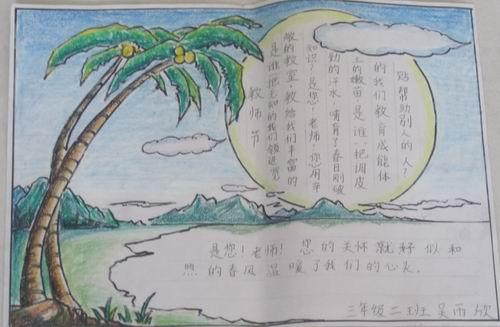 教师节
是谁把无知的我们领进宽
敞的教室,教给我们丰富的
知识?是您!老师!你用辛
勤的汗水,哺育了春日刚破
土的嫩苗,是谁,把调皮
的我们教育成能体
贴帮助别人的人?
是您!老师! 您的关怀就好似和
煦的春风温暖了我们的心灵.
三年级二班吴雨欣